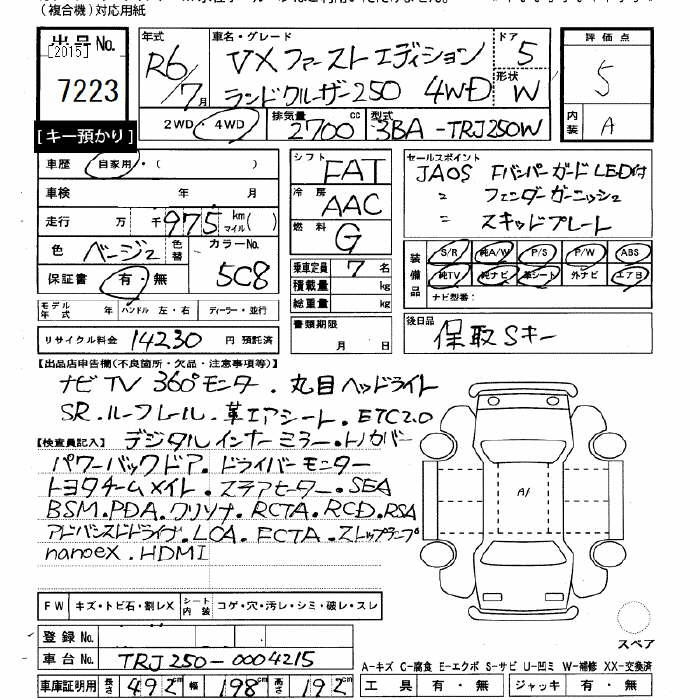 （複合機）対応用紙
出品No.
[2015]
7223
[キー預かり]
年式
R6/7月
車名・グレード
VX ファーストエディション
ランドクルーザー250 4WD
ドア
5
形状
W
評価点
5
内装
A
2WD・4WD
排気量
2700cc
型式
3BA-TRJ250W
車歴
自家用・（ ）
車検 年 月
走行 万 千 975 km マイル( )
色
ベージュ
色替
カラーNo.
5C8
保証書
有・無
モデル年式 年
ハンドル 左・右
ディーラー・並行
リサイクル料金 14230 円 預託済
シフト
FAT
冷房
AAC
燃料
G
乗車定員 7 名
積載量 kg
総重量 kg
書類期限
月 日
セールスポイント
JAOS FバンパーガードLED付
〃 フェンダーガーニッシュ
〃 スキッドプレート
装備品
S/R 純A/W P/S P/W ABS
純TV 純ナビ 革シート 外ナビ エアB
ナビ型番:
後日品
保取Sキー
【出品店申告欄(不良箇所・欠品・注意事項等)】
ナビTV 360°モニター・丸目ヘッドライト
SR・ルーフレール・革エアシート・ETC2.0
【検査員記入】
デジタルインナーミラー・トノカバー
パワーバックドア・ドライバーモニター
トヨタチームメイト・ステアヒーター・SEA
BSM・PDA・クリソナ・RCTA・RCD・RSA
アドバンスドドライブ・LCA・FCTA・ステップランプ
nanoeX・HDMI
A1
FW
キズ・トビ石・割レX
シート内装
コゲ・穴・汚レ・シミ・破レ・スレ
スペア
登録No.
車台No.
TRJ250-0004215
車庫証明用
長さ 492cm 幅 198cm 高さ 192cm
A-キズ C-腐食 E-エクボ S-サビ U-凹ミ W-補修 XX-交換済
工具 有・無
ジャッキ 有・無